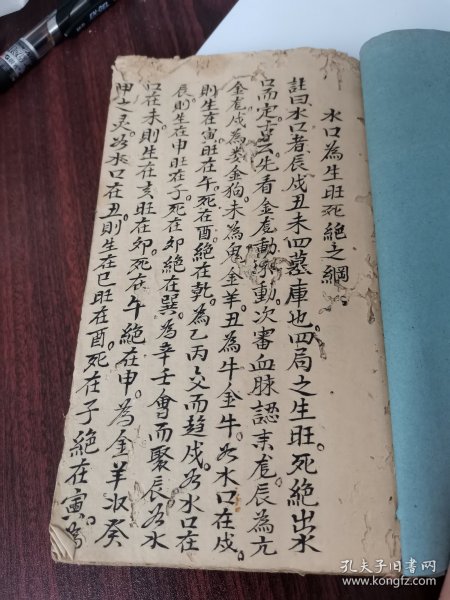 水口為生旺死絶之綱
註曰水口者辰戌丑未四墓庫也。四局之生旺死絶出水
口而定吉凶。先看金尨動不動。次審血脉認来尨。辰為亢
金尨。戌為婁金狗。未為鬼金羊。丑為牛金牛。如水口在戌。
則生在寅。旺在午。死在酉。絶在乾。為乙丙交而趋戌。如水口在
辰。則生在申。旺在子。死在卯。絶在巽。為辛壬會而聚辰。如水
口在未。則生在亥。旺在卯。死在午。絶在申。為金羊收癸
甲之灵。如水口在丑。則生在巳。旺在酉。死在子。絶在寅。為
孔夫子旧书网
www.kongfz.com